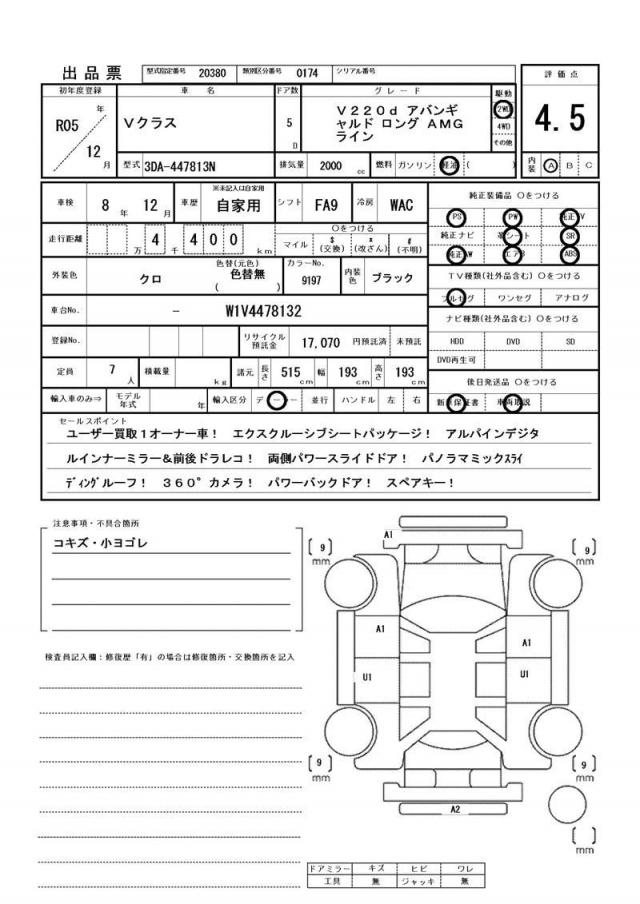 出品票
型式指定番号 20380 類別区分番号 0174 シリアル番号
評価点
4.5
内装 A B C
初年度登録
R05 年
12 月
車名
Vクラス
ドア数
5 D
グレード
V220d アバンギ
ャルド ロング AMG
ライン
駆動
2WD
4WD
その他
型式 3DA-447813N 排気量 2000 cc 燃料 ガソリン 軽油 ( )
車検 8 年 12 月 車歴 ※未記入は自家用 自家用 シフト FA9 冷房 WAC
走行距離 万 4 千 4 0 0 km
〇をつける
マイル $(交換) x(改ざん) #(不明)
外装色 クロ 色替(元色) ( 色替無 ) カラーNo. 9197 内装色 ブラック
車台No. - W1V4478132
登録No. リサイクル預託金 17,070 円預託済 未預託
定員 7 人 積載量 kg 諸元 長さ 515 cm 幅 193 cm 高さ 193 cm
輸入車のみ⇒ モデル年式 年 輸入区分 ディーラー 並行 ハンドル 左 右
純正装備品 〇をつける
PS PW 純正TV
純正ナビ 革シート SR
純正AW エアB ABS
TV種類(社外品含む) 〇をつける
フルセグ ワンセグ アナログ
ナビ種類(社外品含む) 〇をつける
HDD DVD SD
DVD再生可
後日発送品 〇をつける
新車保証書 車両取説
セールスポイント
ユーザー買取1オーナー車! エクスクルーシブシートパッケージ! アルパインデジタ
ルインナーミラー&前後ドラレコ! 両側パワースライドドア! パノラマミックスライ
ディングルーフ! 360°カメラ! パワーバックドア! スペアキー!
注意事項・不具合箇所
コキズ・小ヨゴレ
検査員記入欄:修復歴「有」の場合は修復箇所・交換箇所を記入
A1
[ 9 ] mm
[ 9 ] mm
A1
A1
U1
U1
[ 9 ] mm
[ 9 ] mm
A2
[ ] mm
ドアミラー キズ ヒビ ワレ
工具 無 ジャッキ 無